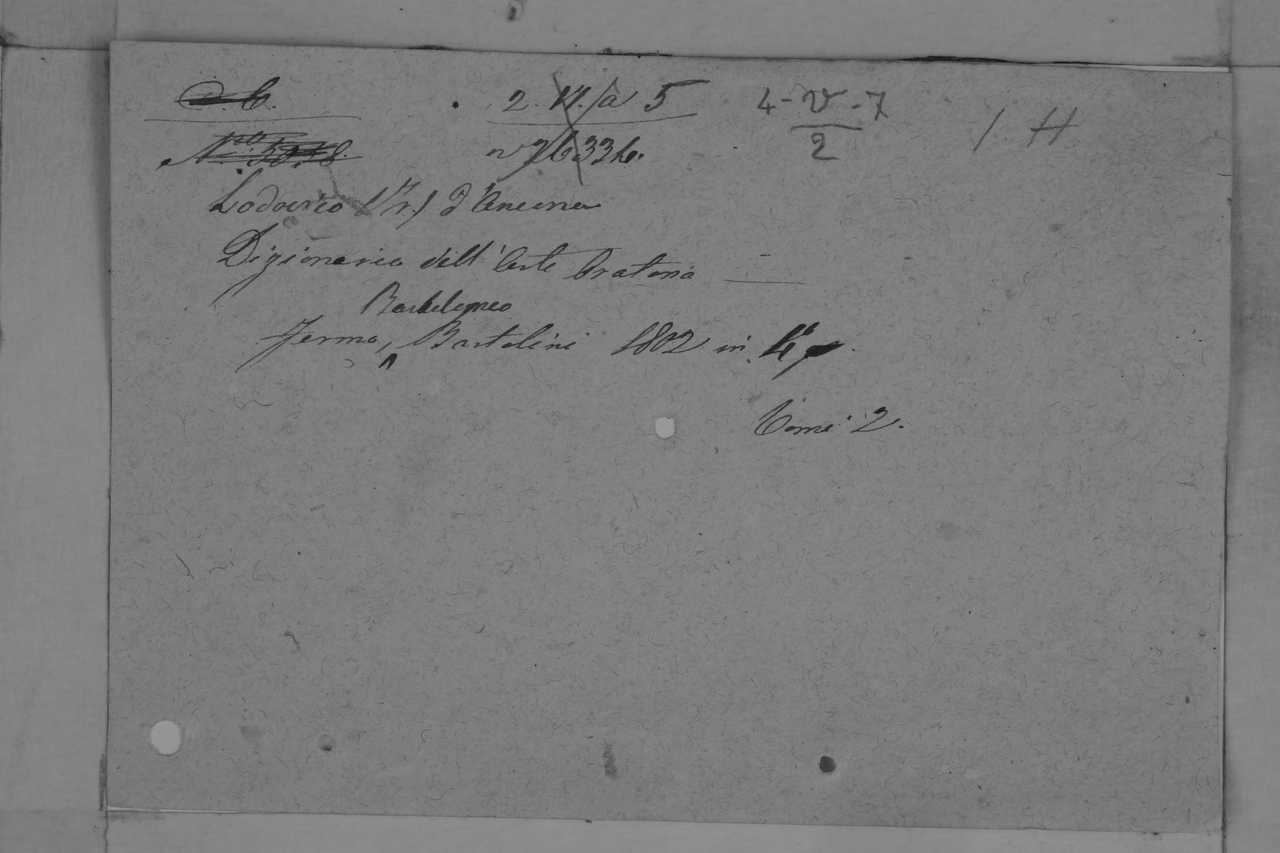 D. C.
2. VI. a 5
4-V-7
2
1 H
Nro 3018.
Lodovico (Fr.) d'Ancona
Dizionario dell'Arte Oratoria
Bartolomeo
Fermo, Bartolini 1802 in 4°
Tomi 2.